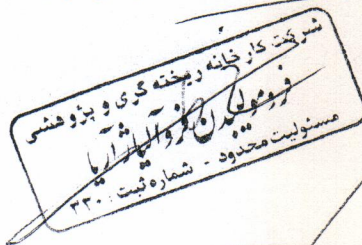 شرکت کارخانه ریخته گری و پژوهشی
فرومولیبدن فروآلیاژ آریا
مسئولیت محدود - شماره ثبت : ۳۳۰